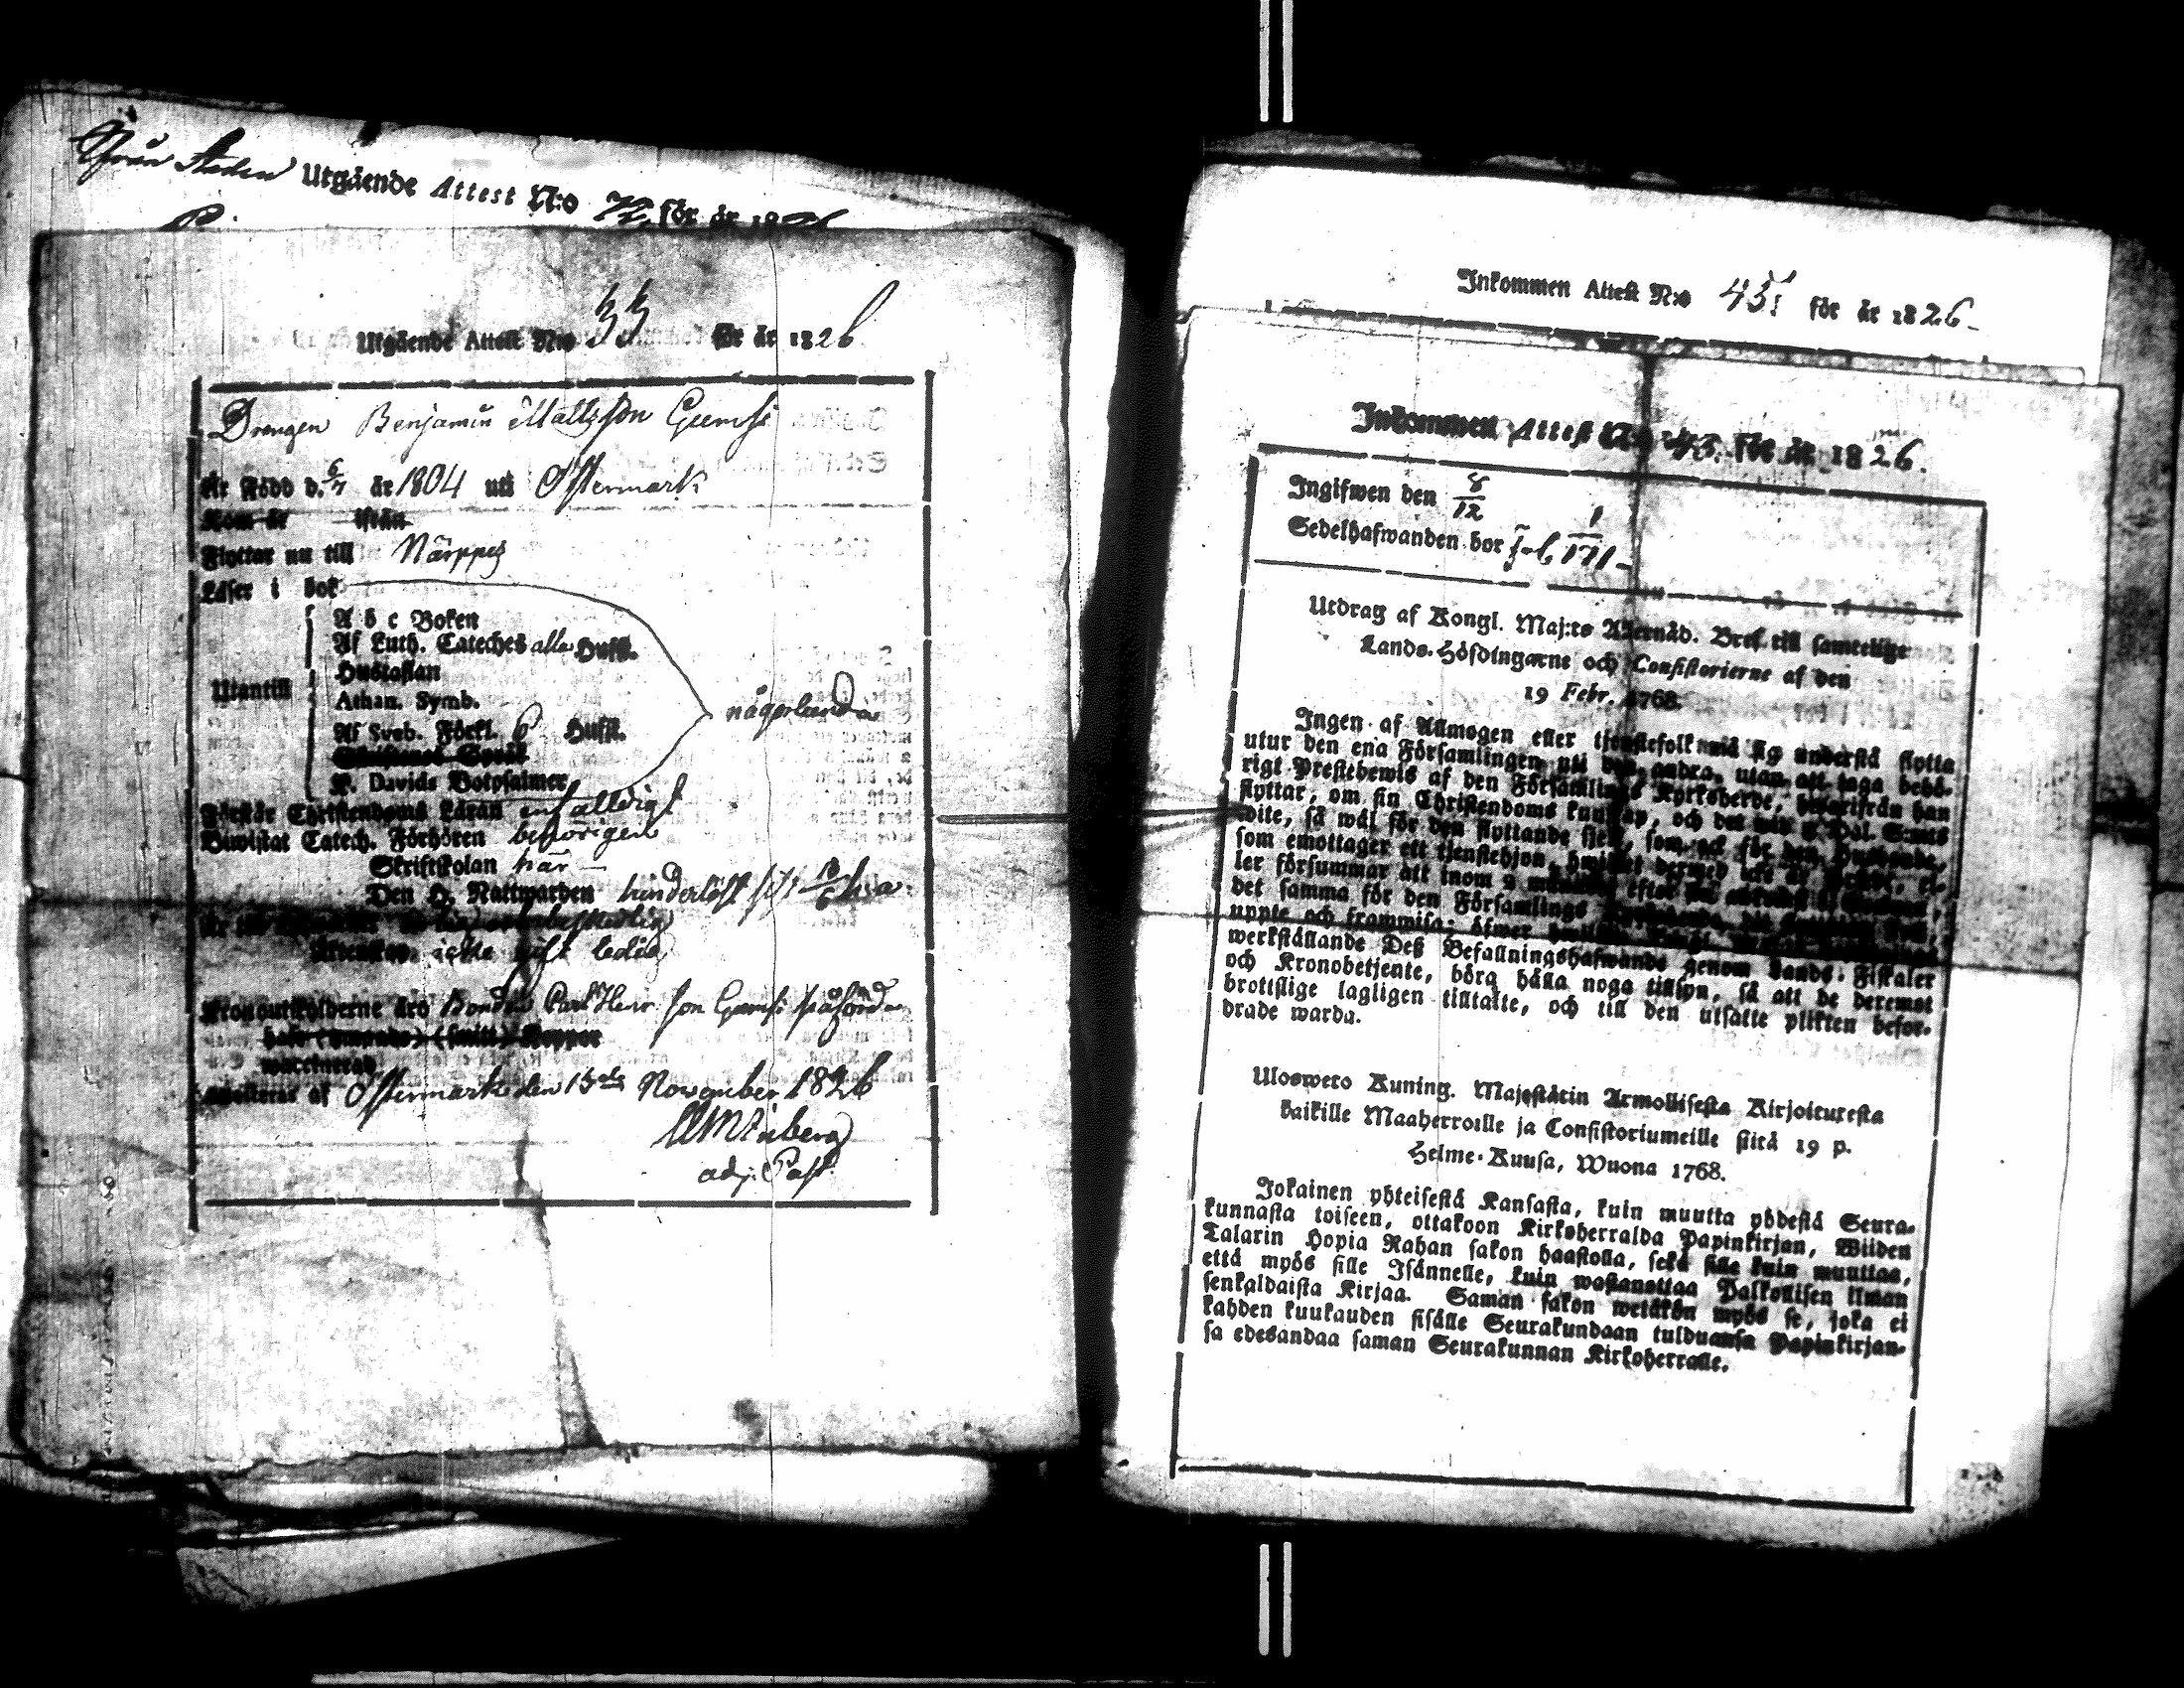 Från Staden Utgående Attest N:o 72 för år 1826
Utgående Attest N:o 33 för år 1826
Drengen Benjamin Mattsson Gumsi
Är Född d. 6/7 år 1804 uti Östermark
Kom år ifrån
Flyttar nu till Närppes
Läser i bok
A b c Boken
Af Luth. Cateches alla Hufst.
Hustaflan
Utantill
Athan. Symb.
Af Sveb. Förkl. 6 Hufst.
K. Davids Botpsalmer
någorlunda
Förstår Christendoms Läran enfaldigt
Biwistat Catech. Förhören behörigen
Skriftskolan här
Den H. Nattwarden hinderlöst sist
icke gift ledig
Kronoutskylderne äro Bonden Carl Gumsi påförda
Koppor
waccinerad
Attesteras af Östermark den 13de November 1826
adj. Past.
Inkommen Attest N:o 45 för år 1826
Inkommen Attest N:o 43 för år 1826.
Ingifwen den 8/12
Sedelhafwanden bor 1/171
Utdrag af Kongl. Maj:ts Allernåd. Bref till samtelige
Lands-Höfdingarne och Consistorierne af den
19 Febr. 1768.
Ingen af Allmogen eller tjenstefolk må sig understå flytta
utur den ena Församlingen uti den andra, utan att taga behö-
rigt Prestebewis af den Församlings Kyrkoherde, hwarifrån han
flyttar, om sin Christendoms kunskap, och det wid 2 Dal. S:mts
wite, så wäl för den flyttande sjelf, som ock för den Husbonde,
som emottager ett tjenstehjon, hwilket dermed icke är försedt, el-
ler försummar att inom 2 månader efter
det samma för den Församlings Kyrkoherde
uppte och framwisa; öfwer
werkställande Deß Befallningshafwande genom Lands-Fiskaler
och Kronobetjente, böra hålla noga tillsyn, så att de deremot
brottslige lagligen tilltalte, och till den utsatte plikten befor-
drade warda.
Uloswero Kuning. Majestätin Armollisesta Kirjoituresta
kaikille Maaherroille ja Consistoriumeille siitä 19 p.
Helme-Kuusa, Wuona 1768.
Jokainen yhteisestä Kansasta, kuin muutta yhdestä Seura-
kunnasta toiseen, ottakoon Kirkoherralda Papinkirjan, Wiiden
Talarin Hopia Rahan sakon haastolla, sekä sille kuin muuttaa,
että myös sille Isännelle, kuin wastanottaa Palkollisen ilman
senkaldaista Kirjaa. Saman sakon wetäkön myös se, joka ei
kahden kuukauden sisälle Seurakundaan tulduansa Papinkirjan-
sa edesandaa saman Seurakunnan Kirkoherralle.